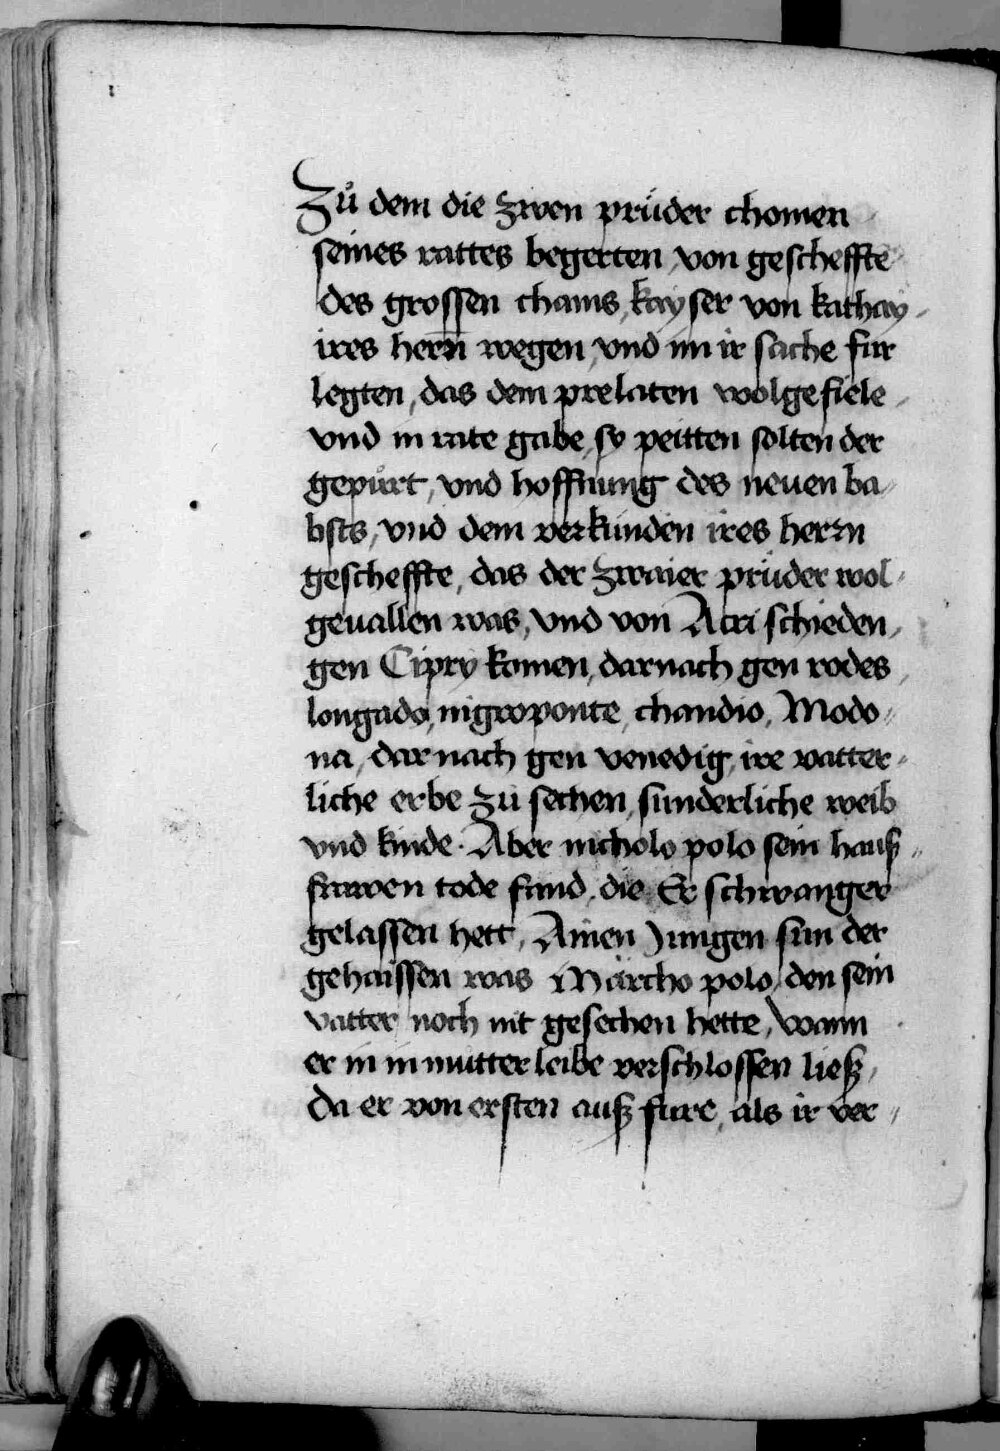 Zů dem die zwen prüder chomen
seines rattes begerten, von gescheffte
des grossen chams, kayser von kathay
ires hern̄ wegen, vnd im ir sache fur
legten, das dem prelaten wolgefiele
vnd in rate gabe, sy peitten solten der
gepůrt, vnd hoffnung des neuen ba
bsts, vnd dem verkunden ires herrn
gescheffte, das der zwaier prüder wol
geuallen was, vnd von Acri schieden,
gen Cipry komen, darnach gen rodes,
longado, nigroponte, chandio, Modo
na, darnach gen venedig, ire vatter
liche erbe zu sechen, sunderliche weib
vnd kinde. Aber nicholo polo sein hauß
frawen tode fand, die Er schwanger
gelassen hett, Ainen Jungen sun der
gehaissen was Marcho polo, den sein
vatter noch nit gesechen hette, wann
er in in mutter leibe verschlossen ließ,
da er von ersten auß fure, als ir ver